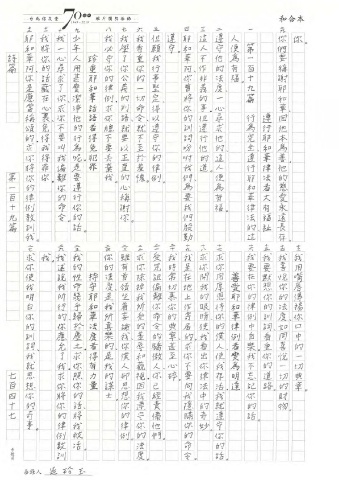 和合本
台北信友堂 70
你。
你們要稱謝耶和華因他本為善他的慈愛永遠長存
遵行耶和華律法者大有福祉
第一百一十九篇 行為完全遵行耶和華律法的這
人便為有福
遵守他的法度一心尋求他的這人便為有福
這人不作非義的事但遵行他的道
耶和華阿你曾將你的訓詞吩咐我們為要我們殷勤
遵守
但願我行事堅定得以遵守你的律例
我看重你的一切命令就不至於羞愧
我學了你公義的判語就要以正直的心稱謝你
我必守你的律例求你總不要丟棄我
珍重耶和華話語者得免犯罪
少年人用甚麼潔淨他的行為呢是要遵行你的話
我一心尋求了你求你不要叫我偏離你的命令
我將你的話藏在心裏免得我得罪你
耶和華阿你是應當稱頌的求你將你的律例教訓我
我用嘴唇傳揚你口中的一切典章
我喜悅你的法度如同喜悅一切的財物
我要默想你的訓詞看重你的道路
我要在你的律例中自樂我不忘記你的話
愛耶和華律例者
求你用厚恩待你的僕人使我存活我就遵守你的話
求你開我的眼睛使我看出你律法中的奇妙
我是在地上作寄居的求你不要向我隱瞞你的命令
我時常切慕你的典章甚至心碎
受咒詛偏離你命令的驕傲人你已經責備他們
求你除掉我所受的羞辱和藐視因我遵守你的法度
雖有首領坐着妄論我你僕人卻思想你的律例
你的法度是我所喜樂的是我的謀士
持守耶和華法度者得有力量
我的性命幾乎歸於塵土求你照你的話將我救活
我述說我所行的你應允了我求你將你的律例教訓
我
求你使我明白你的訓詞我就思想你的奇事
詩篇 第一百十九篇 七百四十七